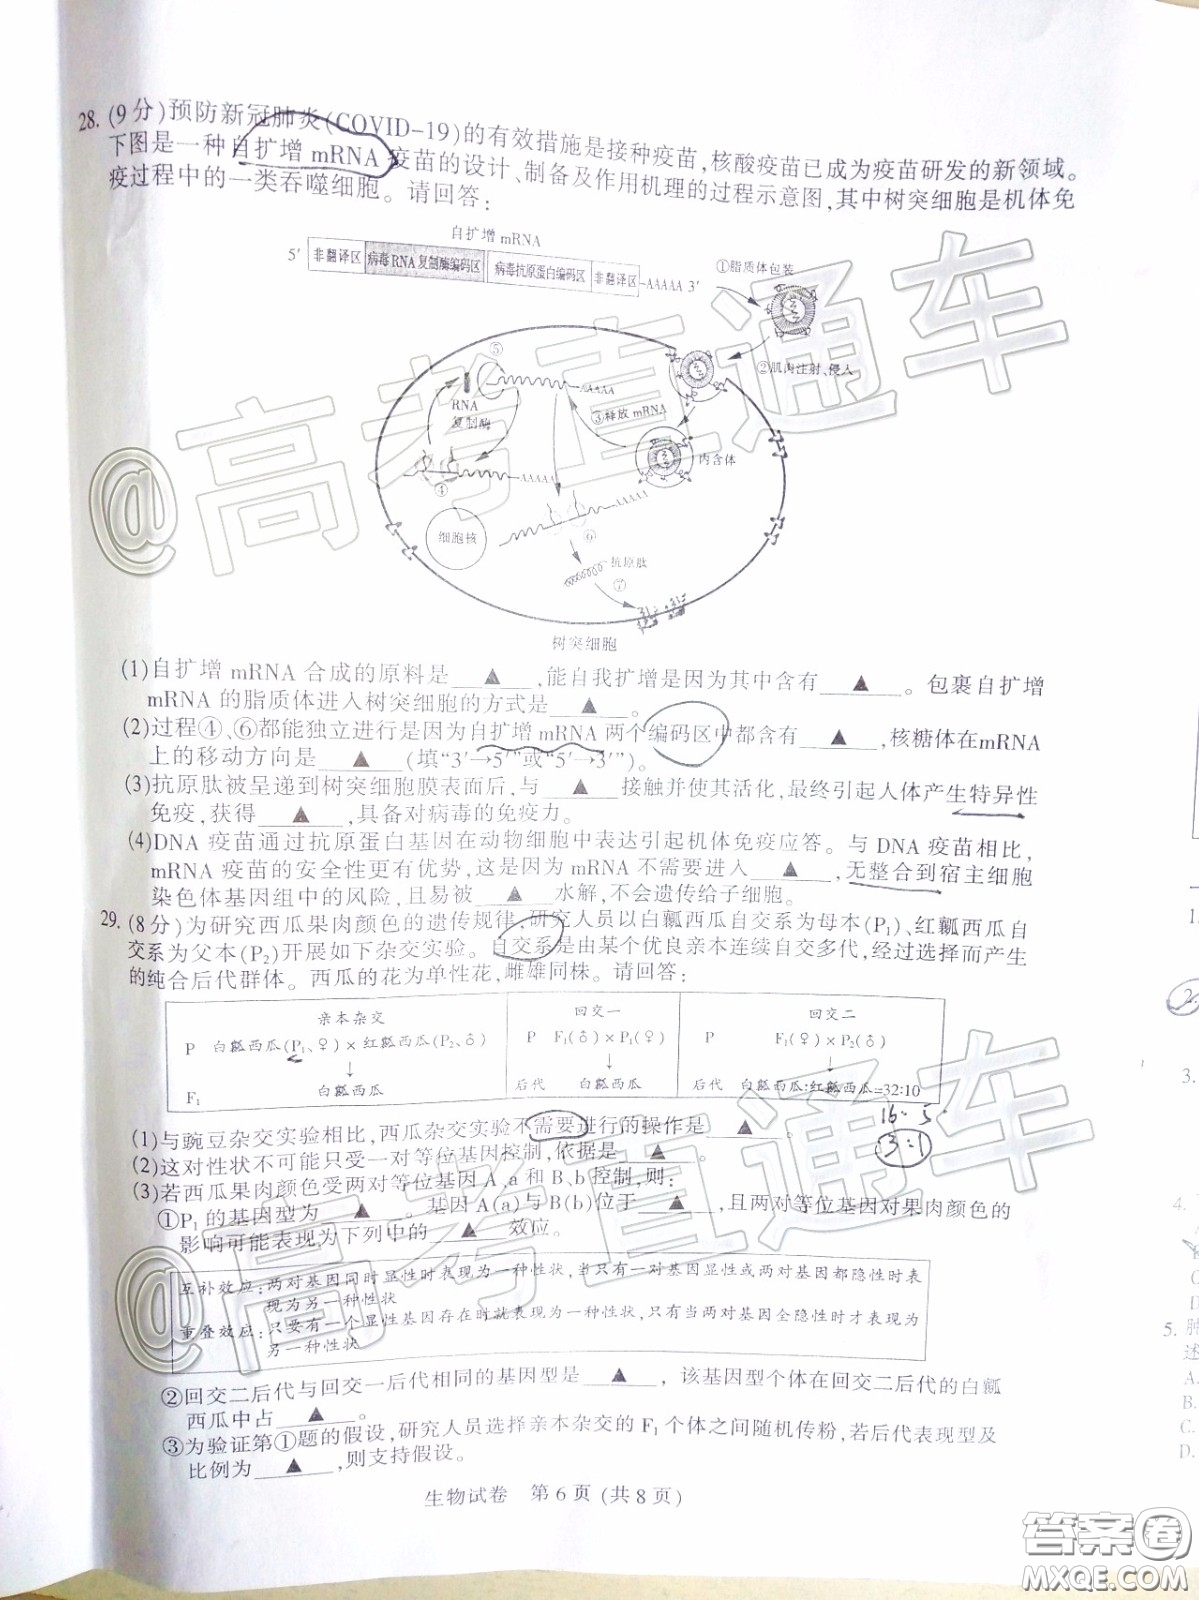 28. (9分)预防新冠肺炎(COVID-19)的有效措施是接种疫苗,核酸疫苗已成为疫苗研发的新领域。
下图是一种自扩增 mRNA 疫苗的设计、制备及作用机理的过程示意图,其中树突细胞是机体免
疫过程中的一类吞噬细胞。请回答:
自扩增 mRNA
5′ 非翻译区 病毒RNA复制酶编码区 病毒抗原蛋白编码区 非翻译区 -AAAAA 3′
①脂质体包装
②肌肉注射、侵入
⑤
AAAA
RNA
复制酶
③释放 mRNA
内含体
④
AAAAA
AAAAA
细胞核
⑥
抗原肽
⑦
树突细胞
(1)自扩增 mRNA 合成的原料是____▲____,能自我扩增是因为其中含有____▲____。包裹自扩增
mRNA 的脂质体进入树突细胞的方式是____▲____。
(2)过程④、⑥都能独立进行是因为自扩增 mRNA 两个编码区中都含有____▲____,核糖体在mRNA
上的移动方向是____▲____(填“3′→5′”或“5′→3′”)。
(3)抗原肽被呈递到树突细胞膜表面后,与____▲____接触并使其活化,最终引起人体产生特异性
免疫,获得____▲____,具备对病毒的免疫力。
(4)DNA 疫苗通过抗原蛋白基因在动物细胞中表达引起机体免疫应答。与 DNA 疫苗相比,
mRNA 疫苗的安全性更有优势,这是因为 mRNA 不需要进入____▲____,无整合到宿主细胞
染色体基因组中的风险,且易被____▲____水解,不会遗传给子细胞。
29. (8分)为研究西瓜果肉颜色的遗传规律,研究人员以白瓤西瓜自交系为母本(P₁)、红瓤西瓜自
交系为父本(P₂)开展如下杂交实验。自交系是由某个优良亲本连续自交多代,经过选择而产生
的纯合后代群体。西瓜的花为单性花,雌雄同株。请回答:
亲本杂交 回交一 回交二
P 白瓤西瓜(P₁、♀)×红瓤西瓜(P₂、♂) P F₁(♂)×P₁(♀) P F₁(♀)×P₂(♂)
↓ ↓ ↓
F₁ 白瓤西瓜 后代 白瓤西瓜 后代 白瓤西瓜:红瓤西瓜=32:10
16:5
3:1
(1)与豌豆杂交实验相比,西瓜杂交实验不需要进行的操作是____▲____。
(2)这对性状不可能只受一对等位基因控制,依据是____▲____。
(3)若西瓜果肉颜色受两对等位基因 A、a 和 B、b 控制,则:
①P₁ 的基因型为____▲____。基因 A(a)与 B(b)位于____▲____,且两对等位基因对果肉颜色的
影响可能表现为下列中的____▲____效应。
互补效应:两对基因同时显性时表现为一种性状,当只有一对基因显性或两对基因都隐性时表
现为另一种性状
重叠效应:只要有一个显性基因存在时就表现为一种性状,只有当两对基因全隐性时才表现为
另一种性状
②回交二后代与回交一后代相同的基因型是____▲____,该基因型个体在回交二后代的白瓤
西瓜中占____▲____。
③为验证第①题的假设,研究人员选择亲本杂交的 F₁ 个体之间随机传粉,若后代表现型及
比例为____▲____,则支持假设。
生物试卷 第 6 页 (共 8 页)
@高考直通车
@高考直通车
答案卷
MXQE.COM
1.
2.
3.
4.
C
D
5. 肺
述
A.
B.
C.
D.